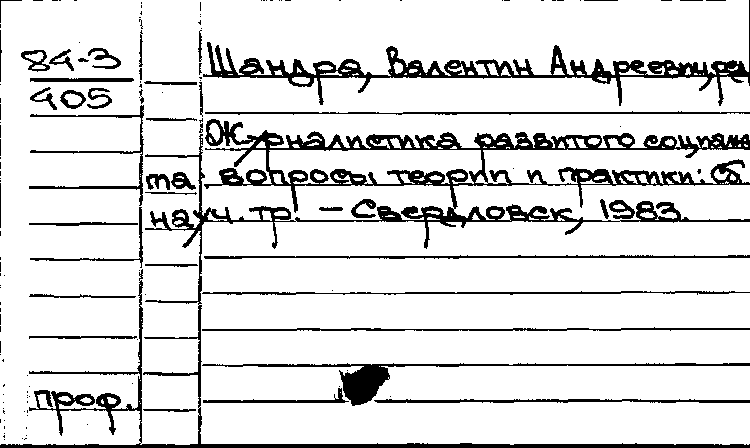 84-3
405
Шандра, Валентин Андреевич, ред
Журналистика развитого социализ
та: вопросы теории и практики: Сб
науч. тр. – Свердловск, 1983.
проф.